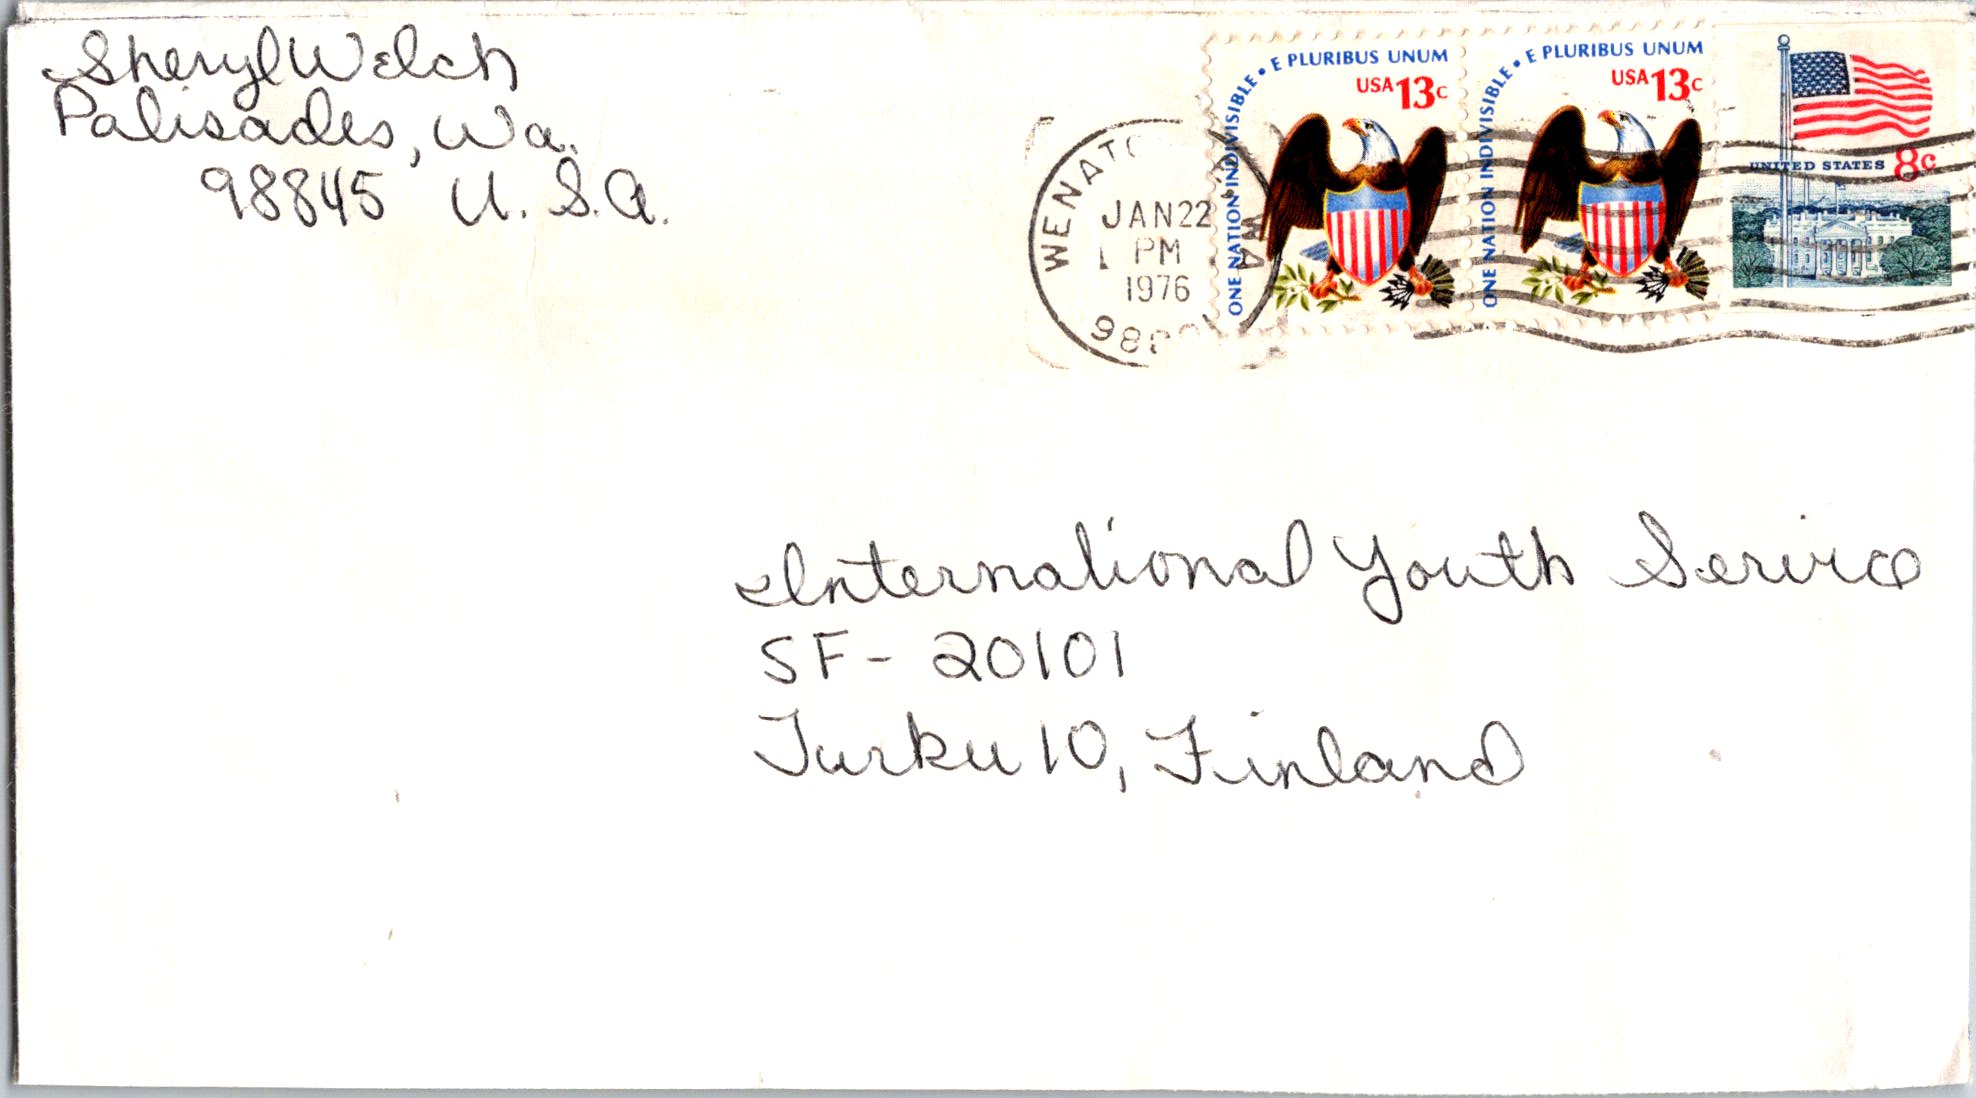 Sheryl Welch
Palisades, Wa.
98845 U.S.A.
ONE NATION INDIVISIBLE • E PLURIBUS UNUM
USA 13c
ONE NATION INDIVISIBLE • E PLURIBUS UNUM
USA 13c
UNITED STATES 8c
WA
JAN 22
PM
1976
International Youth Service
SF- 20101
Turku 10, Finland